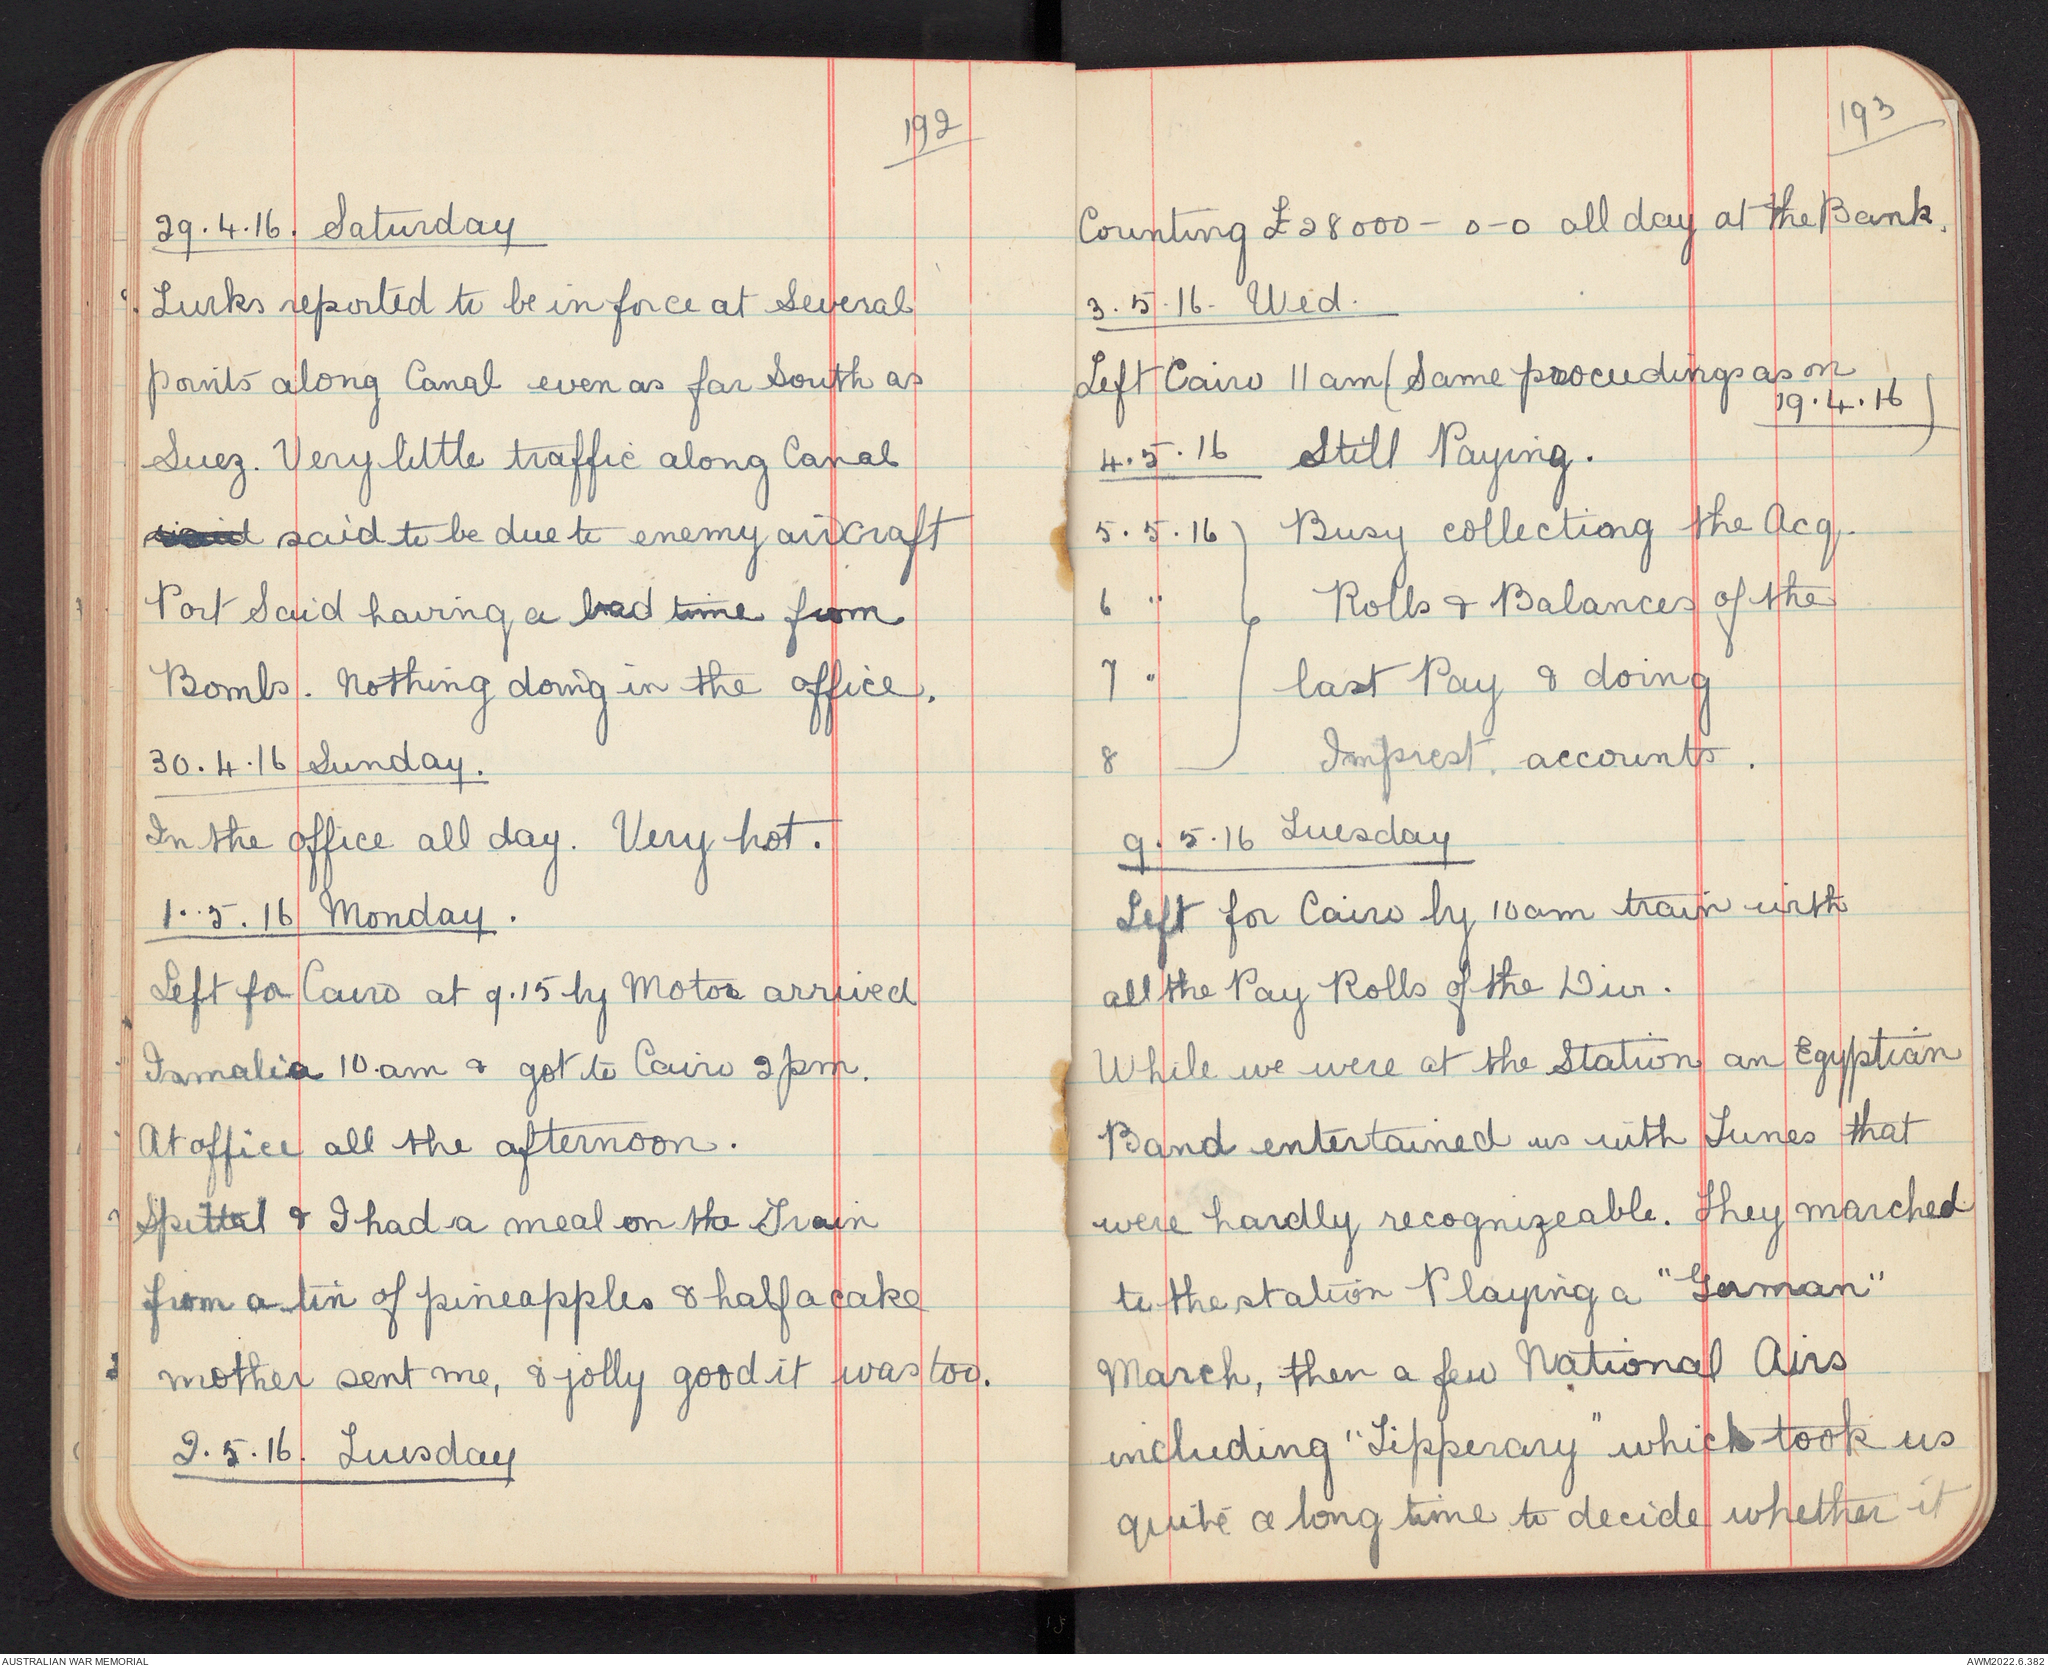 192
29.4.16. Saturday
Turks reported to be in force at Several
points along Canal even as far South as
Suez. Very little traffic along Canal
said to be due to enemy aircraft
Port Said having a bad time from
Bombs. Nothing doing in the office.
30.4.16 Sunday.
In the office all day. Very hot.
1.5.16 Monday.
Left for Cairo at 9.15 by Motor arrived
Ismalia 10.am & got to Cairo 2pm.
At office all the afternoon.
Spittal & I had a meal on the Train
from a tin of pineapples & half a cake
mother sent me, & jolly good it was too.
2.5.16. Tuesday
193
Counting £28000-0-0 all day at the Bank.
3.5.16. Wed.
Left Cairo 11am (Same proceedings as on
19.4.16)
4.5.16 Still Paying.
5.5.16 Busy collecting the Acq.
6 " Rolls & Balances of the
7 " last Pay & doing
8 Imprest accounts.
9.5.16 Tuesday
Left for Cairo by 10am train with
all the Pay Rolls of the Div.
While we were at the Station an Egyptian
Band entertained us with Tunes that
were hardly recognizeable. They marched
to the station Playing a "German"
March, then a few National Airs
including "Tipperary" which took us
quite a long time to decide whether it
AUSTRALIAN WAR MEMORIAL
AWM2022.6.382